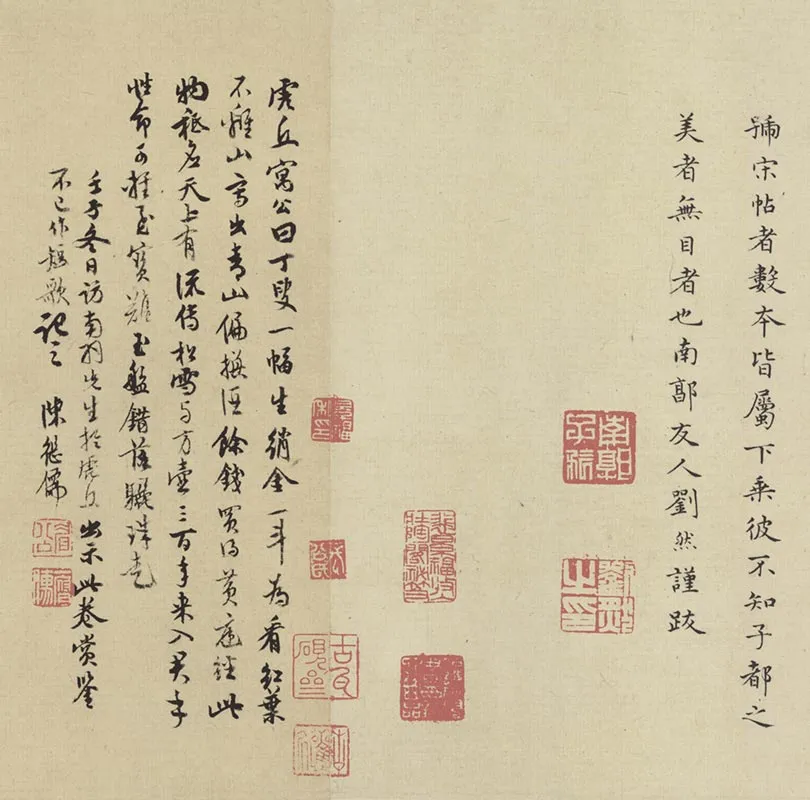 號宋帖者數本皆屬下乘彼不知子都之
美者無目者也南郭友人劉然謹跋
南郭
劉然之印
虎丘寓公曰丁叟一幅生綃金一斗為看紅葉
不離山寫出青山偏換酒餘錢買得黃庭經此
物秪名天上有流傳松雪與方壺三百年來入君手
性命可輕至寶難玉盤錯落驪珠走
壬子冬日訪南羽先生於虎丘出示此卷賞鑒
不已作短歌記之 陳繼儒